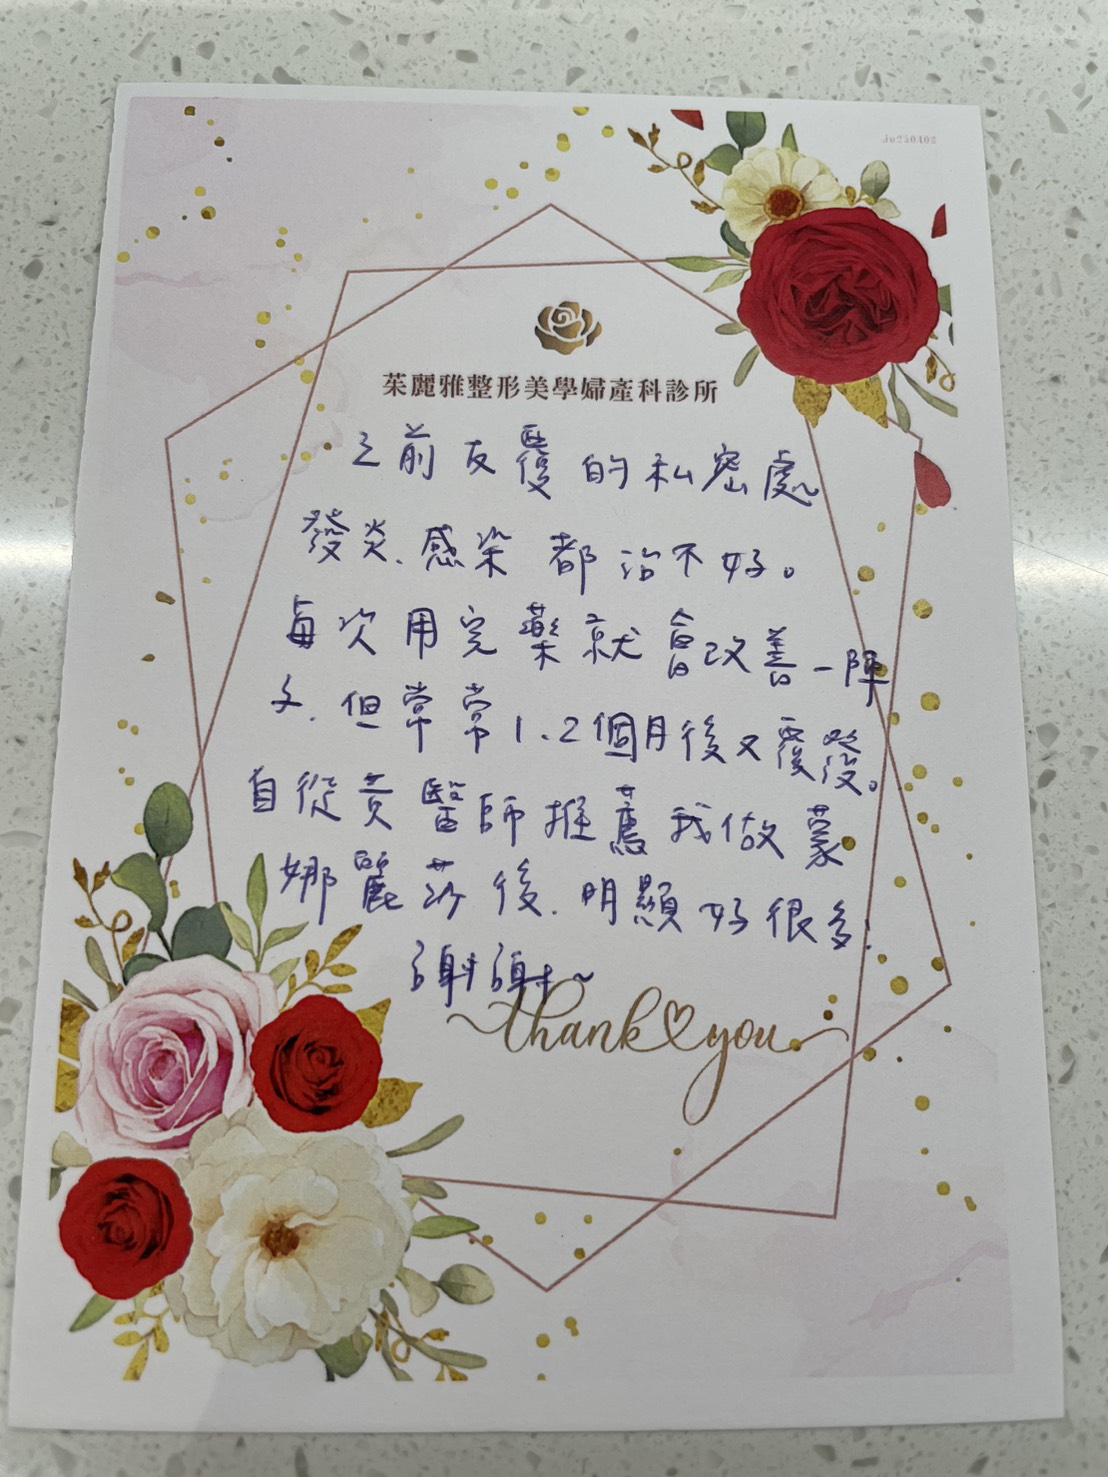 Ju250402
茱麗雅整形美學婦產科診所
之前反覆的私密處
發炎、感染都治不好。
每次用完藥就會改善一陣
子、但常常1、2個月後又覆發。
自從黃醫師推薦我做蒙
娜麗莎後、明顯好很多!
謝謝~
thank you